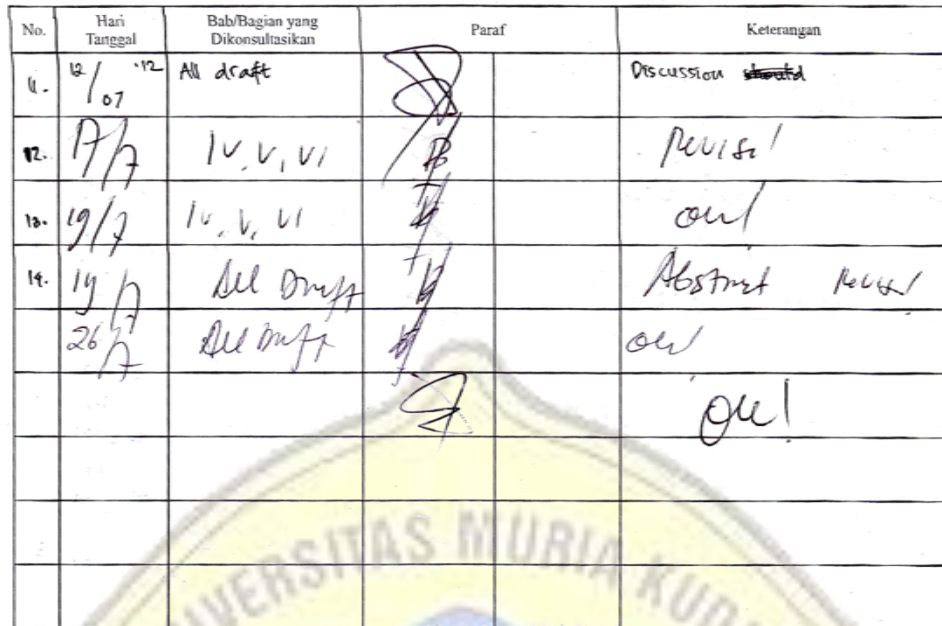 No. Hari Tanggal Bab/Bagian yang Dikonsultasikan Paraf Keterangan
11. 12/07 '12 All draft Discussion
12. 17/7 IV, V, VI Revise!
13. 19/7 IV, V, VI ok!
14. 19/7 All Draft Abstract Revise!
26/7 All Draft ok!
ok!
UNIVERSITAS MURIA KUDUS